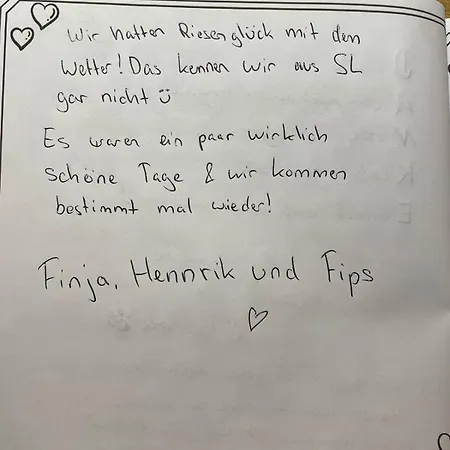 Wir hatten Riesenglück mit dem
Wetter! Das kennen wir aus SL
gar nicht ☺
Es waren ein paar wirklich
schöne Tage & wir kommen
bestimmt mal wieder!
Finja, Hennrik und Fips
♡